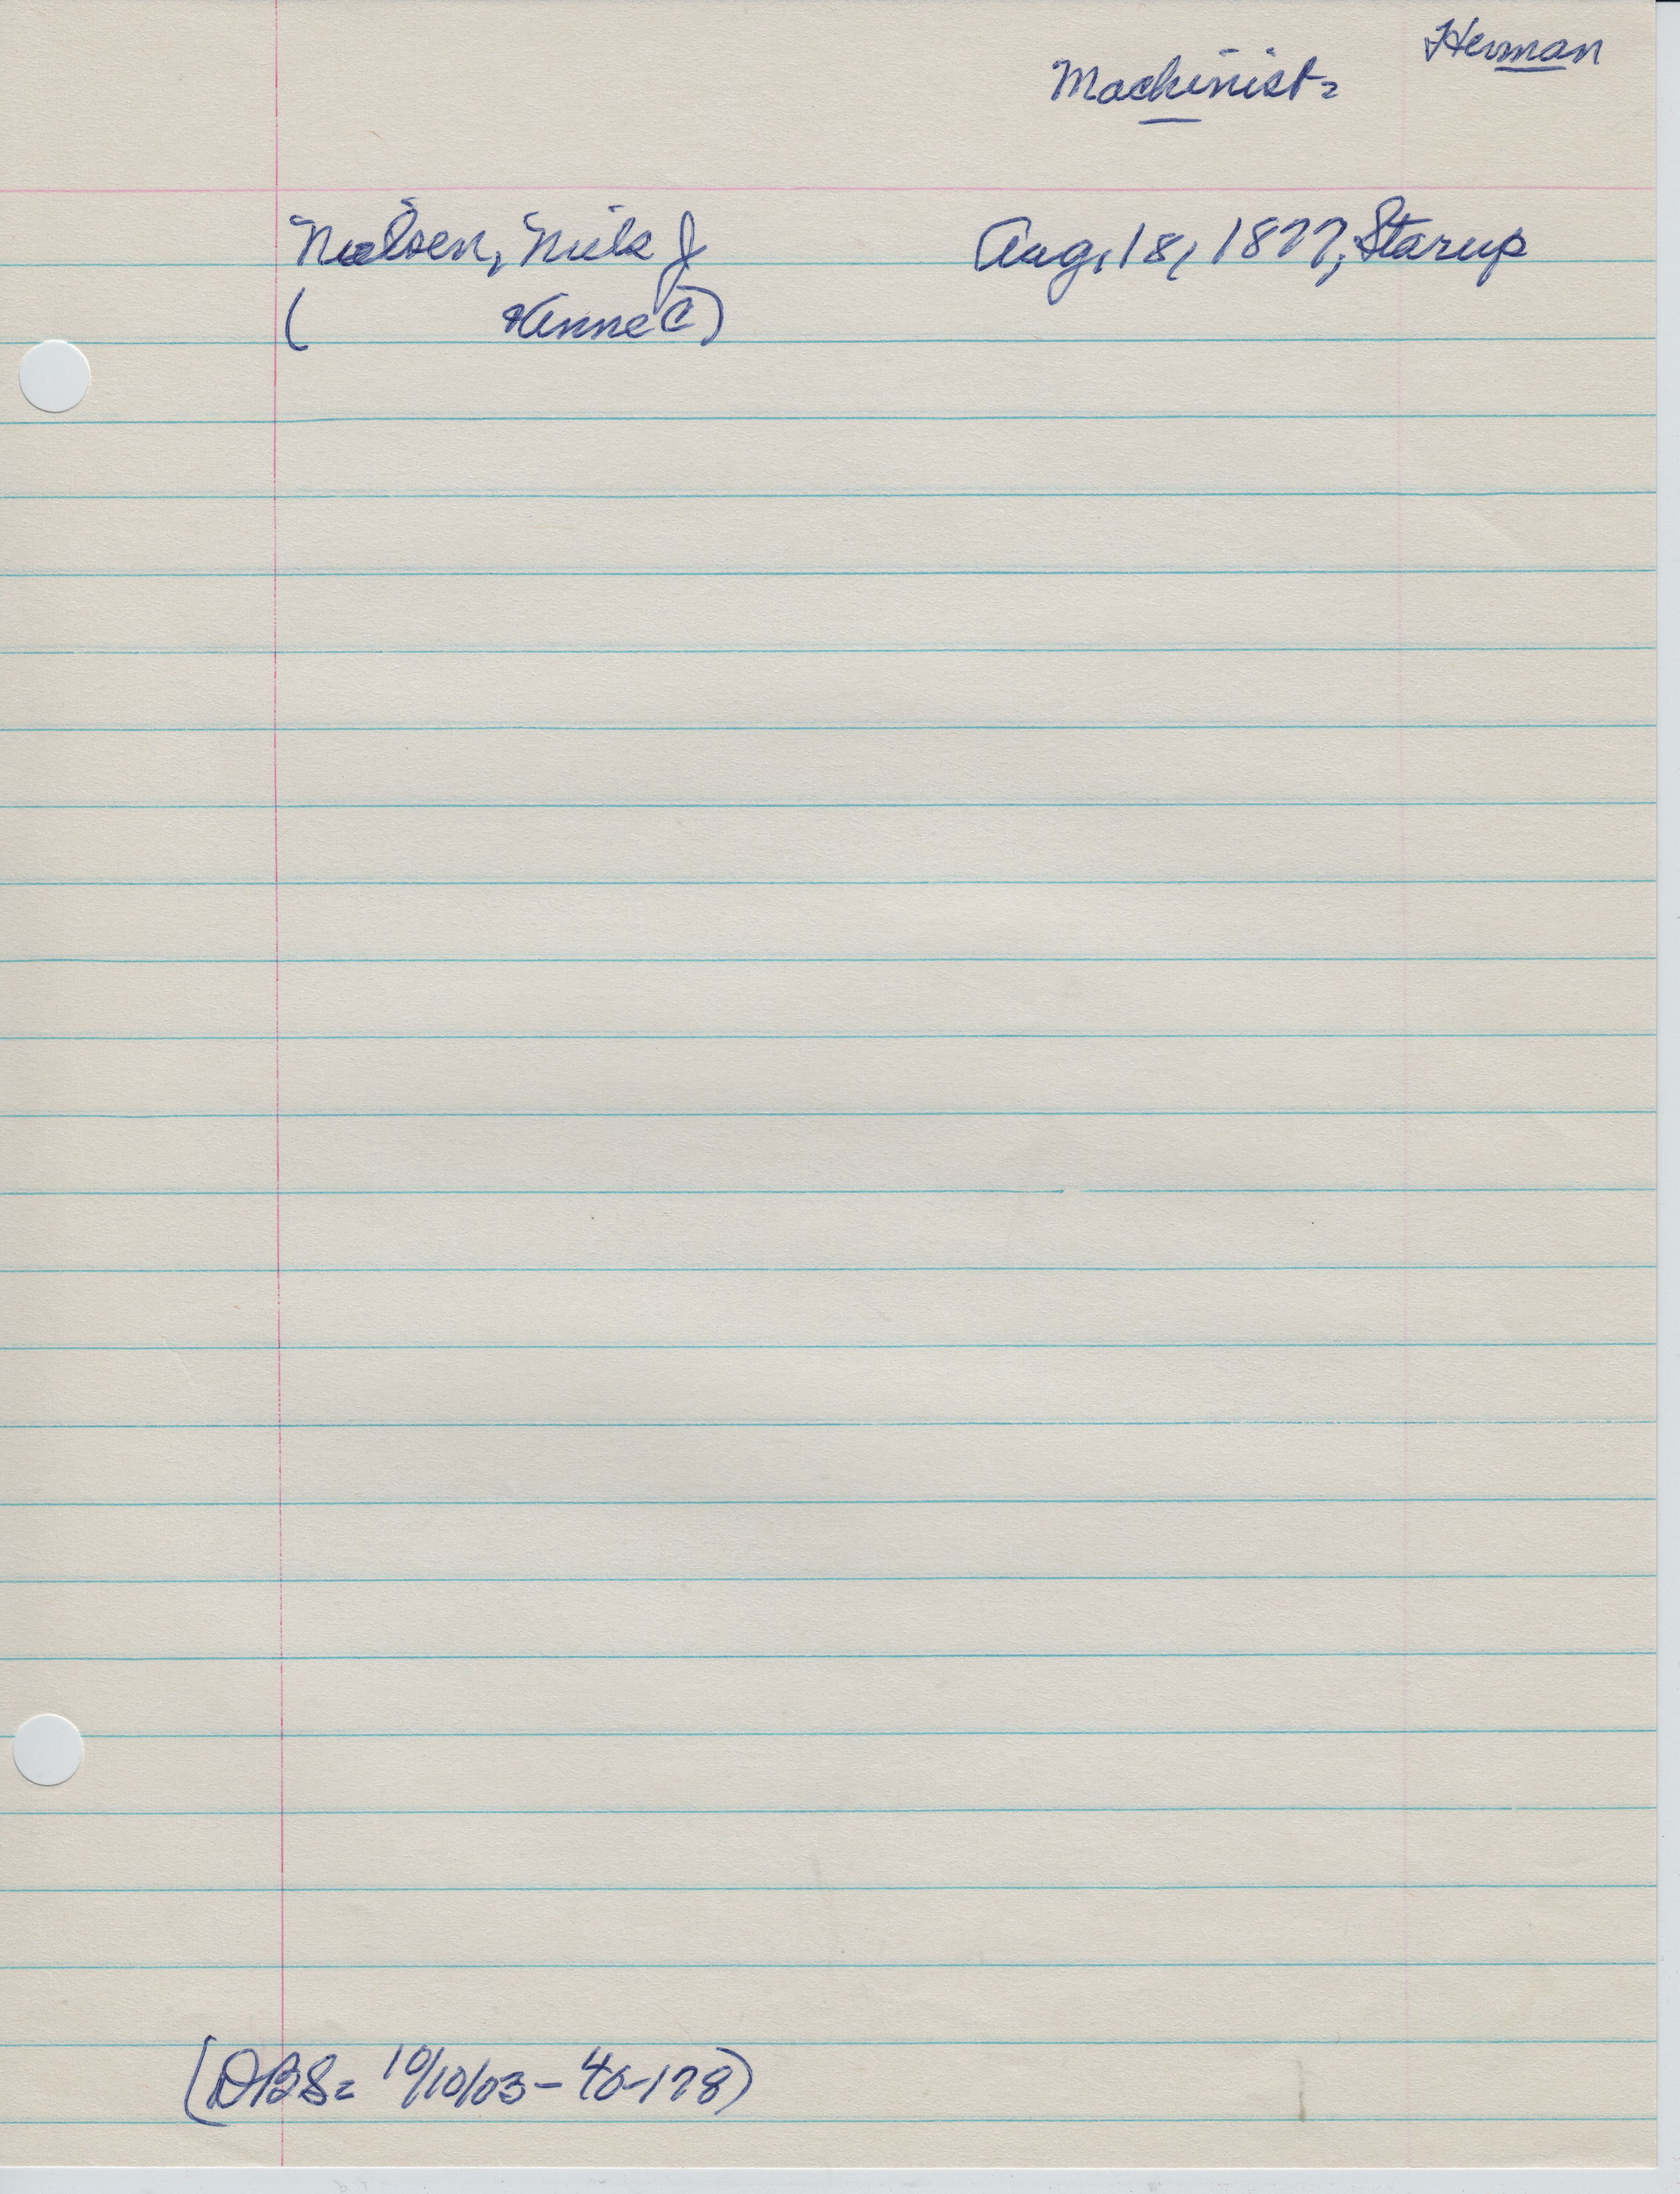 Herman
Machinist=
Nielsen, Niels J Aug, 18, 1877, Starup
( & Anne C)
(DBS= 10/10/03 - 46-178)